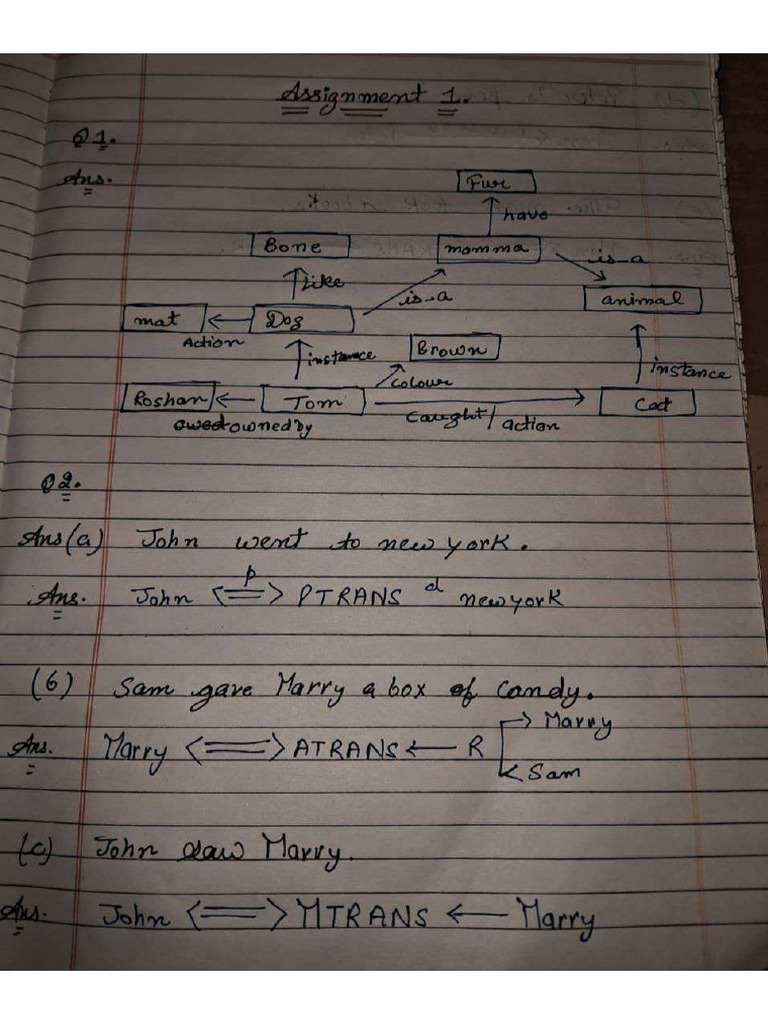 Assignment 1.
Q1.
Ans.
Fur
have
Bone
momma
is-a
like
animal
is-a
mat
Dog
Action
Brown
instance
instance
colour
Roshan
Tom
Cat
owned by
caught/
action
Q2.
Ans(a) John went to new york.
Ans. John <=> PTRANS d newyork
p
(b) Sam gave Marry a box of candy.
Marry
Ans. Marry <=> ATRANS ← R
Sam
(c) John saw Marry.
Ans. John <=> MTRANS ← Marry